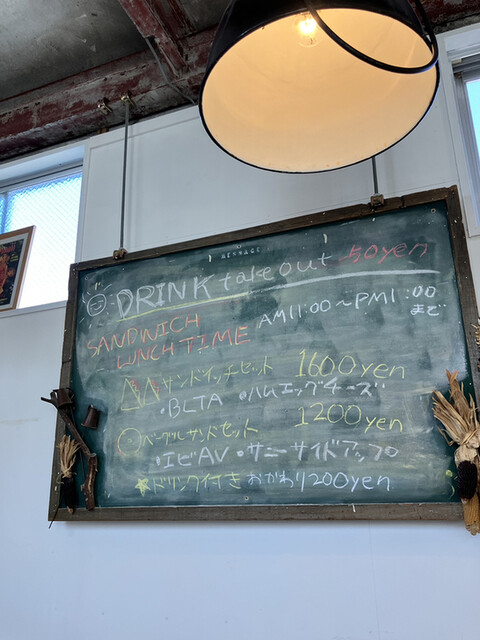 MESSAGE
DRINK take out 50yen
SANDWICH
LUNCH TIME AM11:00〜PM1:00
まで
サンドイッチセット 1600yen
・BLTA ・ハムエッグチーズ
ベーグルサンドセット 1200yen
・エビAV ・サニーサイドアップ
★ドリンク付き おかわり200yen